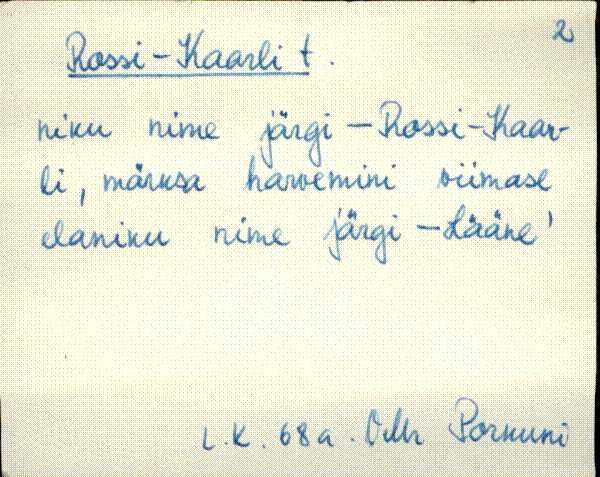 2
Rossi-Kaarli t.
niku nime järgi – Rossi-Kaar-
li, märksa harvemini viimase
elaniku nime järgi – Lääne'
L.K. 68a. Porkuni